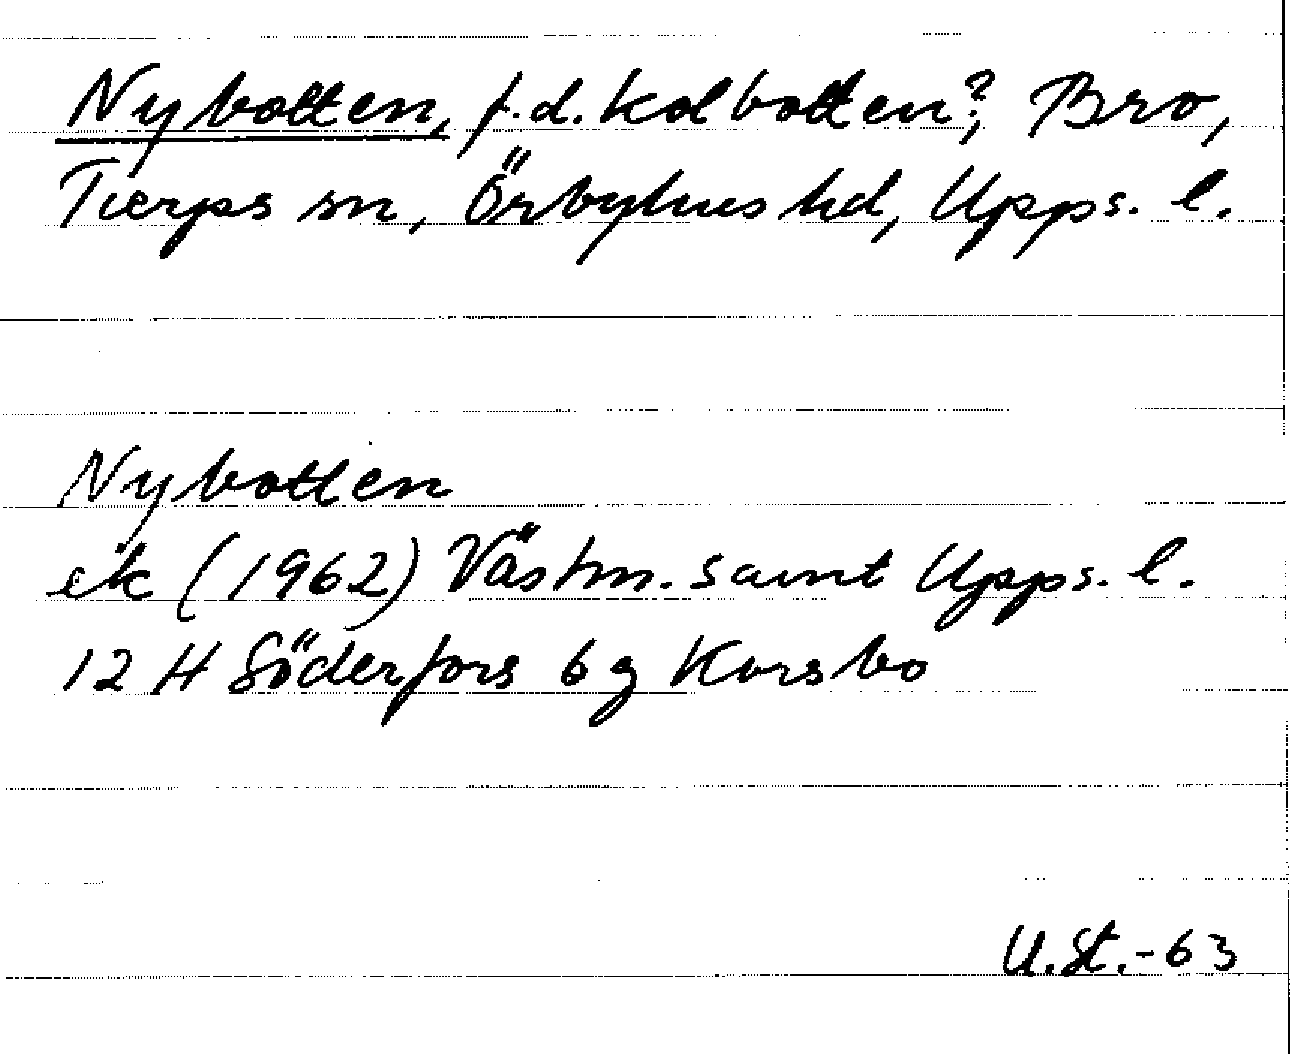 Nybotten, f.d. kolbotten?, Bro,
Tierps sn, Örbyhus hd, Upps. l.
Nybotten
ek (1962) Västm. samt Upps. l.
12 H Söderfors 6 g Korsbo
U.St.-63